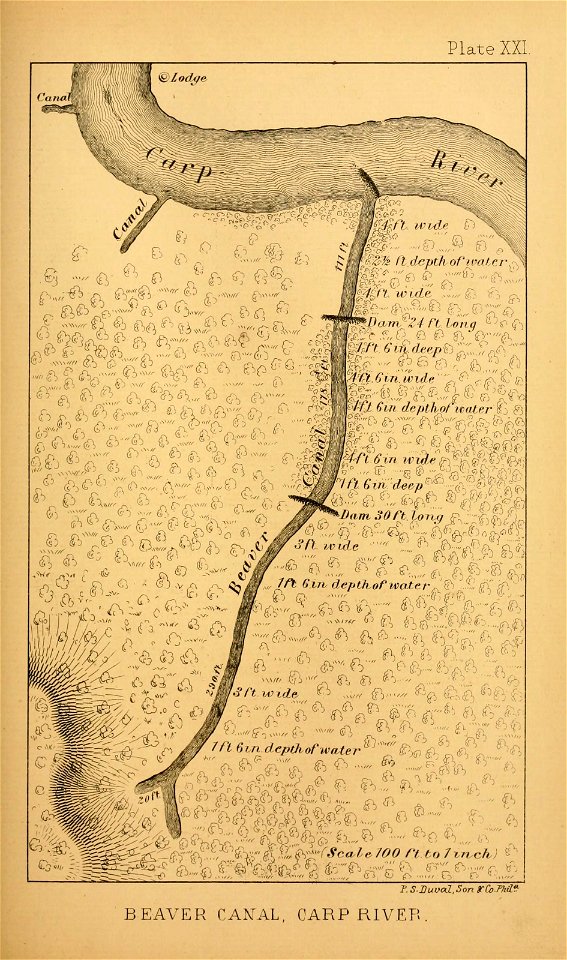 Plate XXI.
Lodge
Canal
Carp River
Canal
4 ft. wide
111 ft.
2½ ft depth of water
4 ft wide
Dam 24 ft long
1 ft 6 in deep
4 ft 6 in wide
1 ft 6 in depth of water
Canal
4 ft 6 in wide
1 ft 6 in deep
Dam 30 ft long
Beaver
3 ft wide
1 ft 6 in depth of water
290 ft.
3 ft wide
1 ft 6 in depth of water
20 ft.
(Scale 100 ft to 1 inch)
P. S. Duval, Son & Co. Phila.
BEAVER CANAL, CARP RIVER.